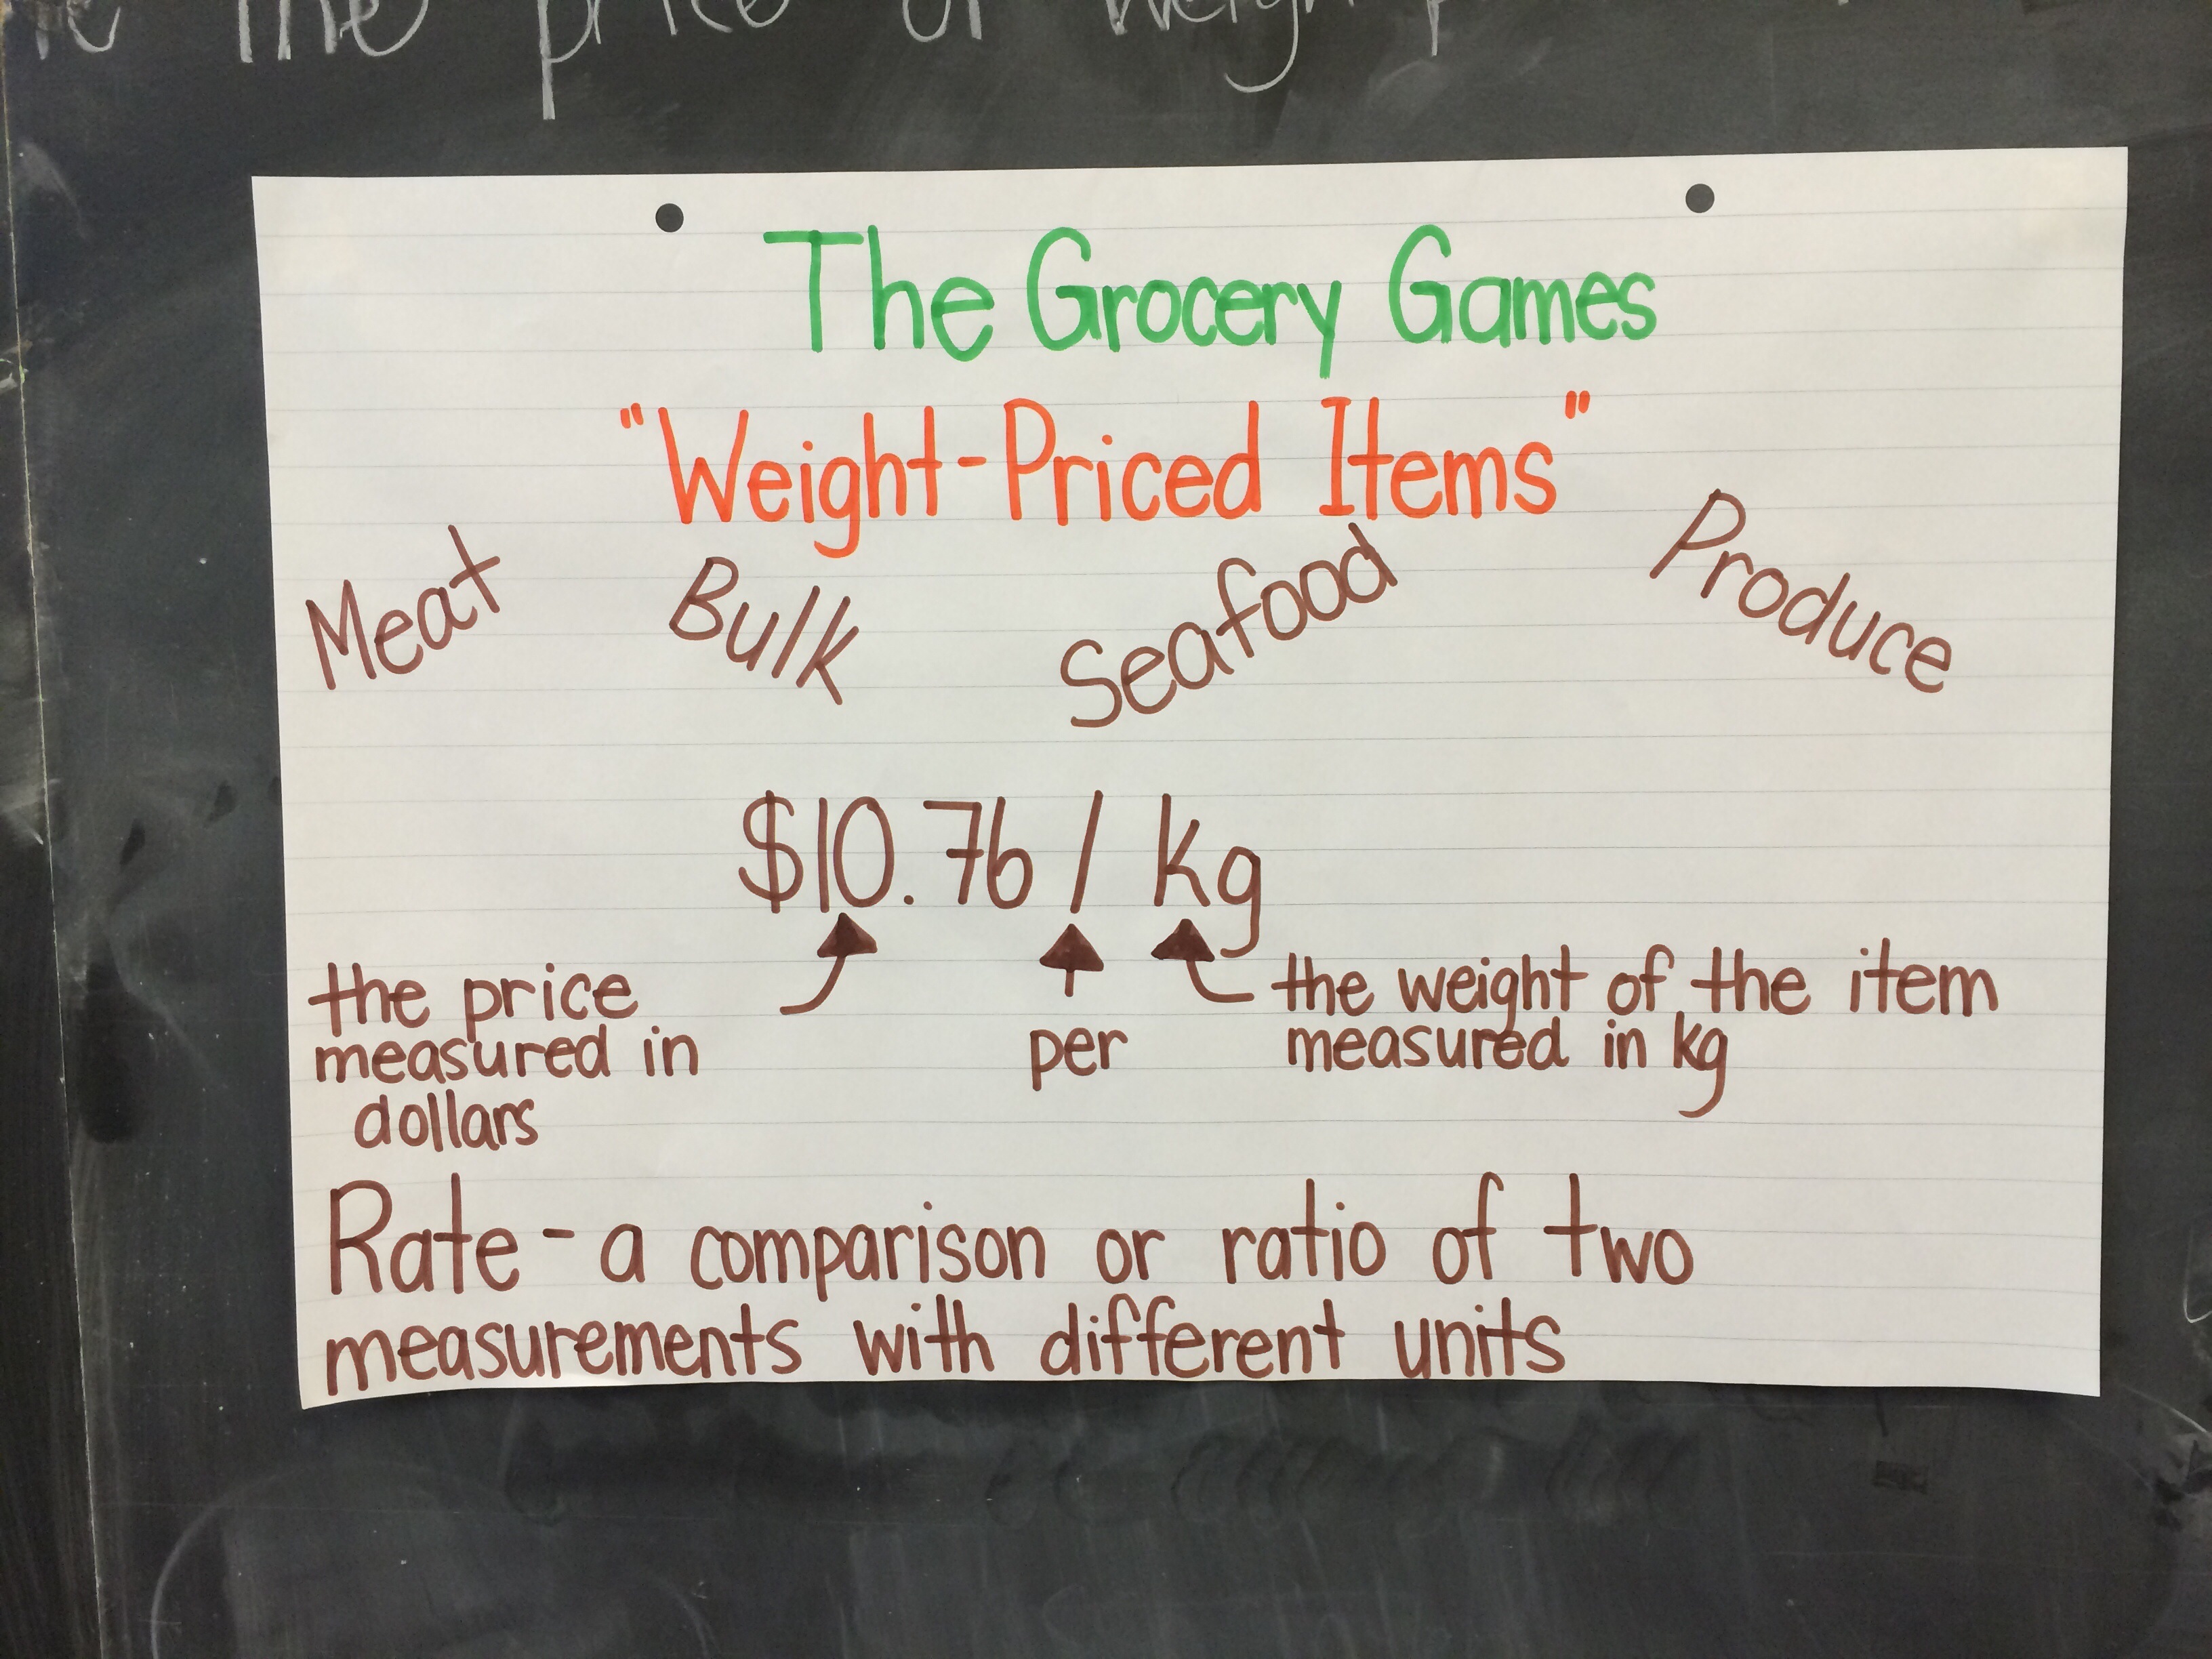 the price of weigh
The Grocery Games
"Weight-Priced Items"
Meat Bulk Seafood Produce
$10.76 / kg
the price
measured in
dollars
per
the weight of the item
measured in kg
Rate - a comparison or ratio of two
measurements with different units